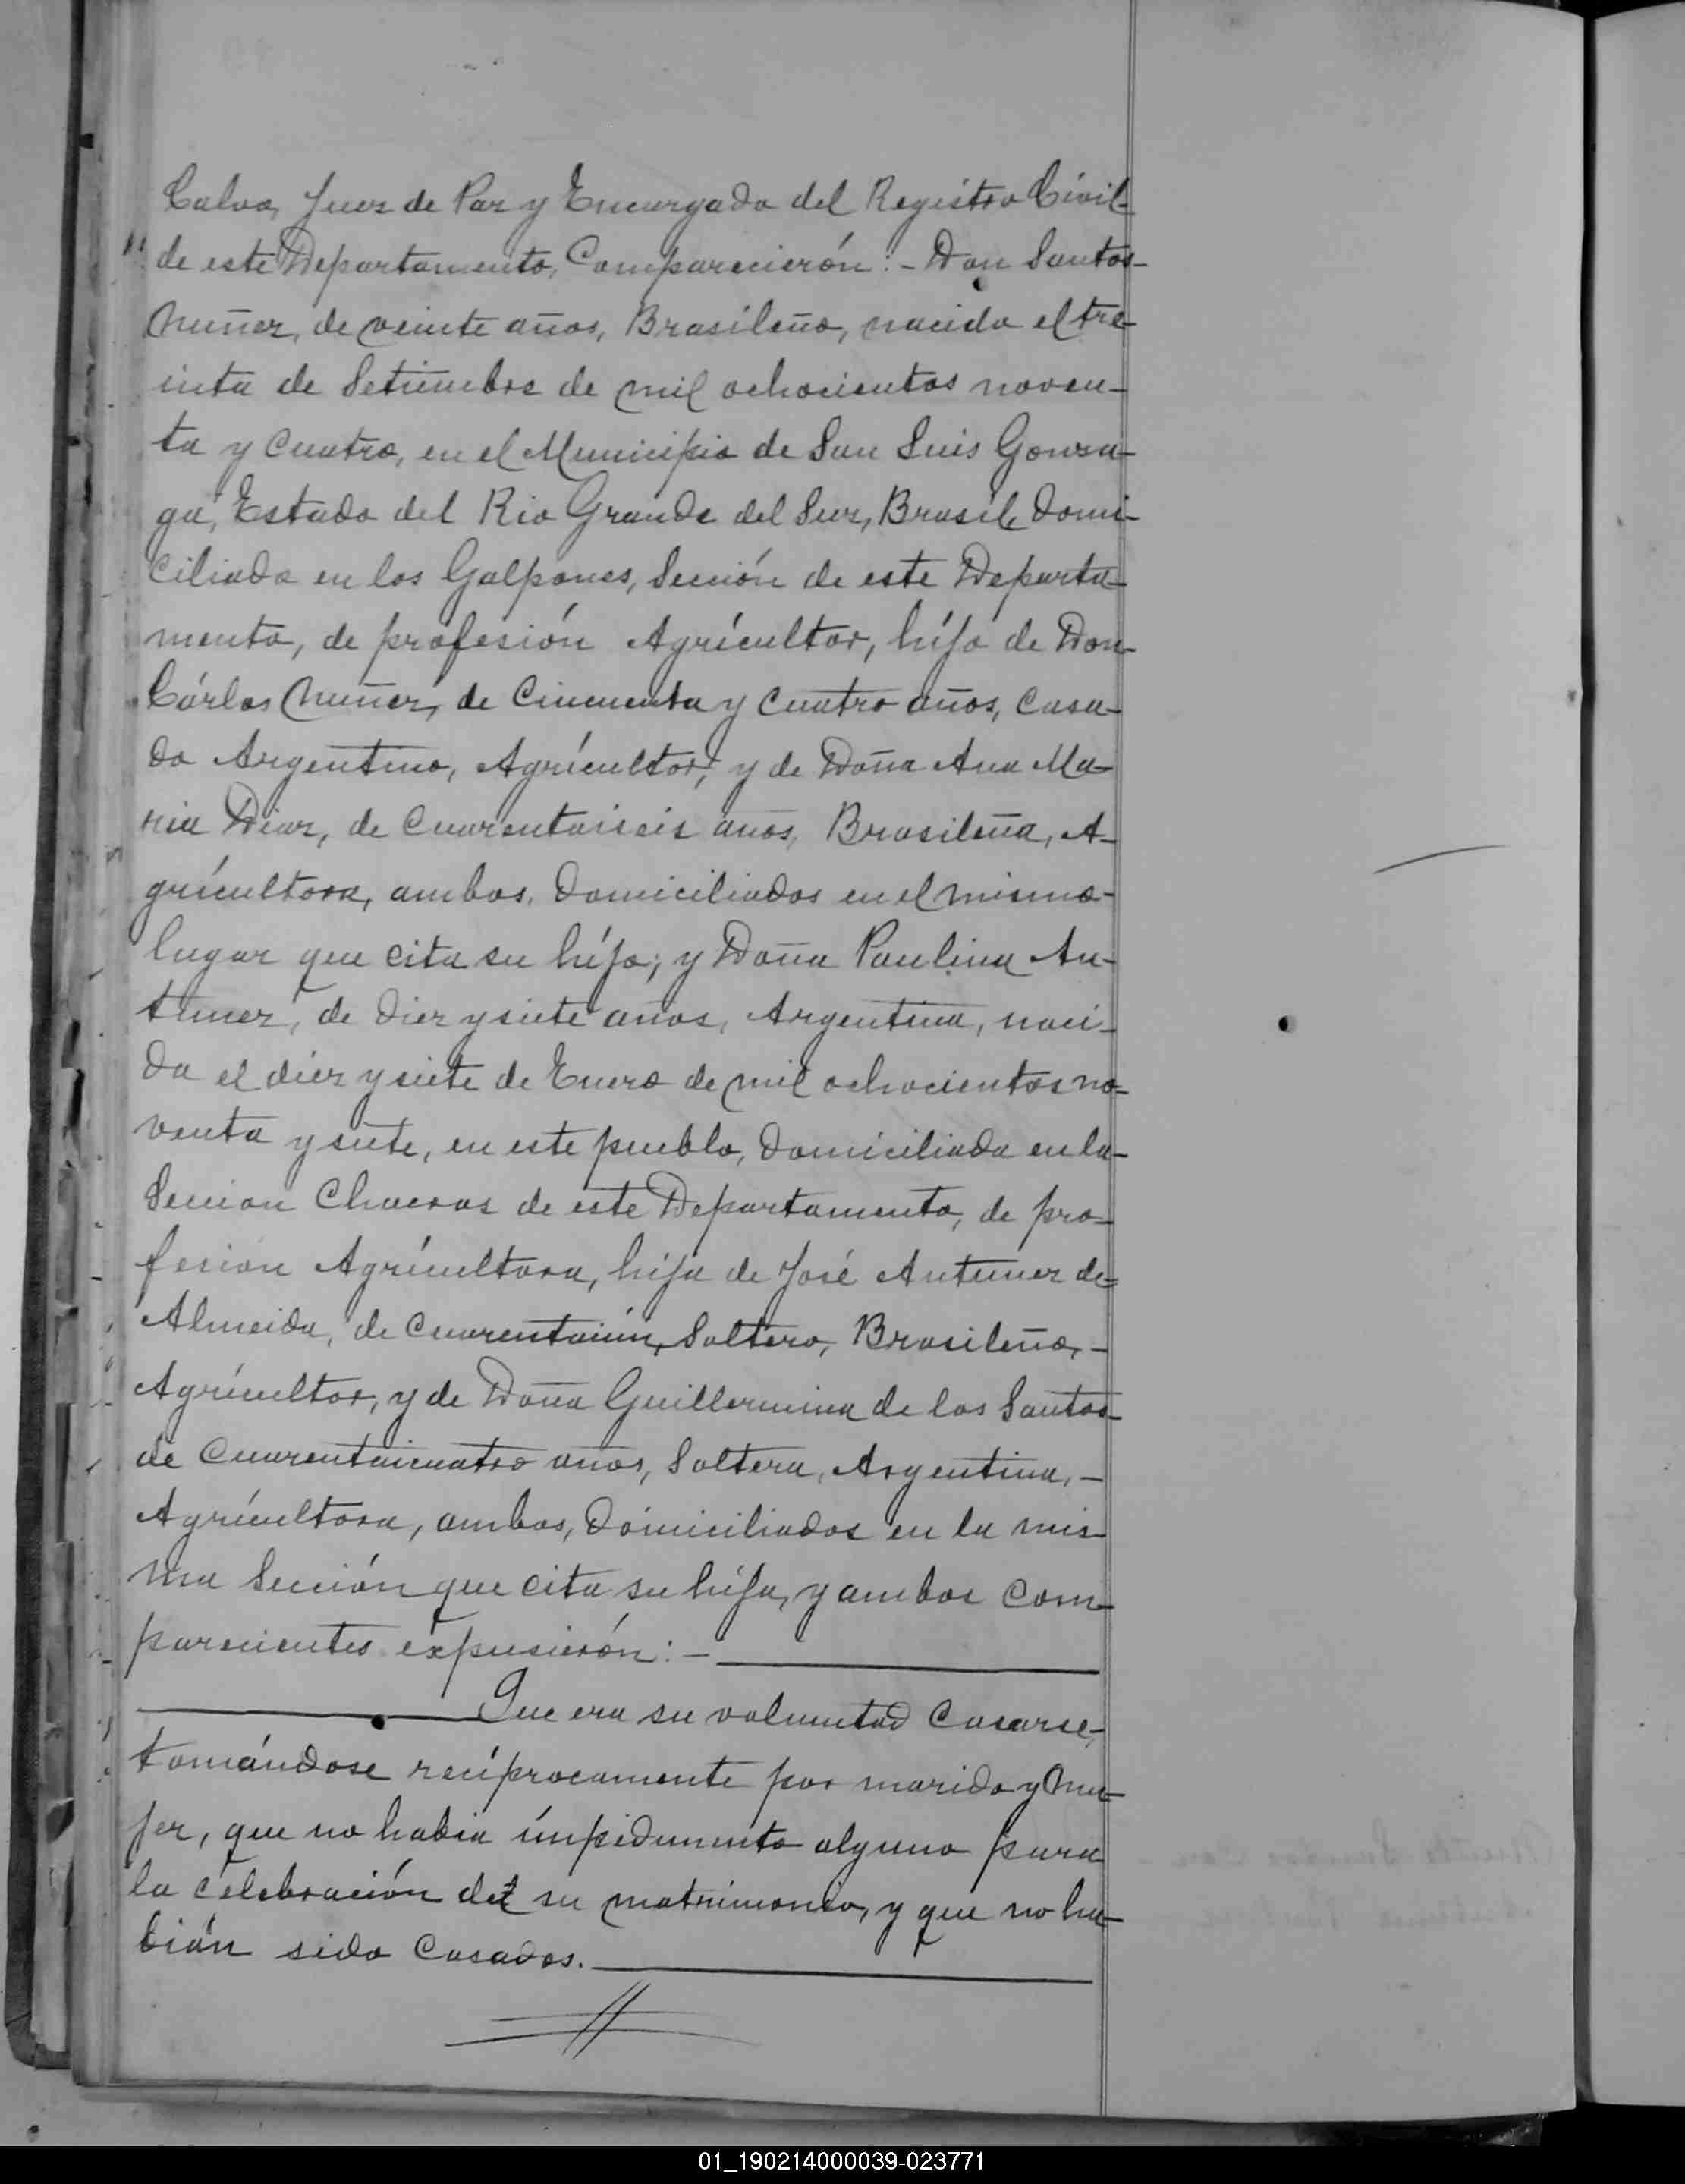 Calvo, Juez de Paz y Encargado del Registro Civil
de este Departamento, Comparecierón:- Don Santos
Nuñez, de veinte años, Brasileño, nacido el tre-
inta de Setiembre de mil ochocientos noven-
ta y Cuatro, en el Municipio de San Luis Gonza-
ga, Estado del Rio Grande del Sur, Brasil, domi-
ciliado en los Galpones, Sección de este Departa-
mento, de profesión Agrícultor, híjo de Don
Cárlos Nuñez, de Cincuenta y Cuatro años, Casa-
do Argentino, Agrícultor, y de Doña Ana Ma-
ria Diaz, de Cuarentaiseis años, Brasileña, A-
grícultora, ambos, domiciliados en el mismo-
lugar que cita su híjo; y Doña Paulina An-
tunez, de diez y siete años, Argentina, naci-
da el diez y siete de Enero de mil ochocientos no-
venta y siete, en este pueblo, domiciliada en la-
Seccion Chacras de este Departamento, de pro-
fesion Agrícultora, híja de José Antunez de=
Almeida, de Cuarentaiún, Soltero, Brasileño,-
Agrícultor, y de Doña Guillermina de los Santos
de Cuarentaicuatro años, Soltera, Argentina,-
Agrícultora, ambos, domiciliados en la mis-
ma Sección que cita su híja, y ambos Com-
parecientes expusierón:-
Que era su voluntad Casarse,
tomándose recíprocamente por marido y mu-
jer, que no habia ímpedimento alguno para
la celebración de su matrimonio, y que no ha-
bián sido Casados.
01_190214000039-023771